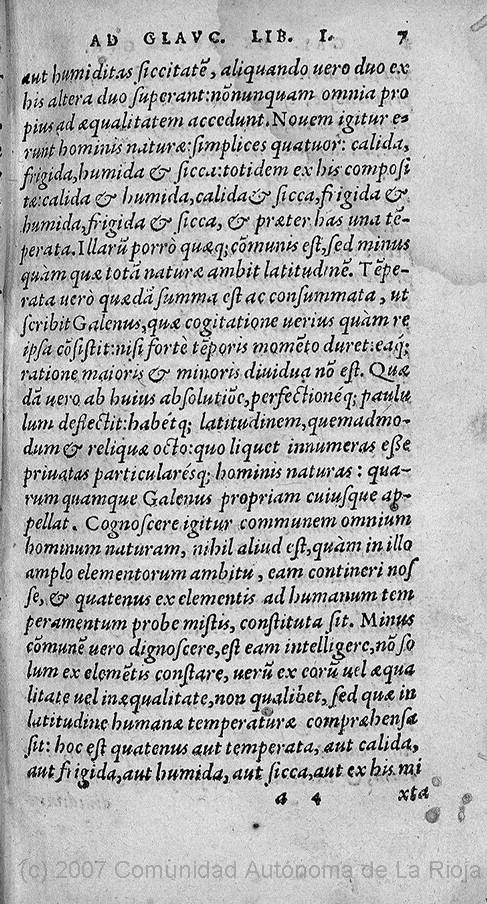 AD GLAVC. LIB. I. 7
aut humiditas ſiccitatē, aliquando uero duo ex
his altera duo ſuperant:nōnunquam omnia pro
pius ad æqualitatem accedunt. Nouem igitur e-
runt hominis naturæ:ſimplices quatuor: calida,
frigida,humida & ſicca:totidem ex his compoſi
tæ:calida & humida,calida & ſicca,frigida &
humida,frigida & ſicca, & præter has una tē-
perata. Illarū porrò quæq; cōmunis eſt,ſed minus
quàm quæ totā naturæ ambit latitudinē. Tēpe-
rata uerò quædā ſumma eſt ac conſummata, ut
ſcribit Galenus,quæ cogitatione uerius quàm re
ipſa cōſiſtit:niſi fortè tēporis momēto duret:eaq́;
ratione maioris & minoris diuidua nō eſt. Quæ
dā uero ab huius abſolutiōe,perfectioneq́; paulu
lum deflectit:habétq; latitudinem,quemadmo-
dum & reliquæ octo:quo liquet innumeras eſſe
priuatas particularésq; hominis naturas: qua-
rum quamque Galenus propriam cuiuſque ap-
pellat. Cognoſcere igitur communem omnium
hominum naturam, nihil aliud eſt,quàm in illo
amplo elementorum ambitu, eam contineri noſ
ſe, & quatenus ex elementis ad humanum tem
peramentum probe miſtis, conſtituta ſit. Minus
cōmunē uero dignoſcere,eſt eam intelligere,nō ſo
lum ex elemētis conſtare, uerū ex eorū uel æqua
litate uel inæqualitate,non qualibet, ſed quæ in
latitudine humanæ temperaturæ compræhenſa
ſit: hoc eſt quatenus aut temperata, aut calida,
aut frigida,aut humida, aut ſicca,aut ex his mi
a 4 xta
(c) 2007 Comunidad Autónoma de La Rioja